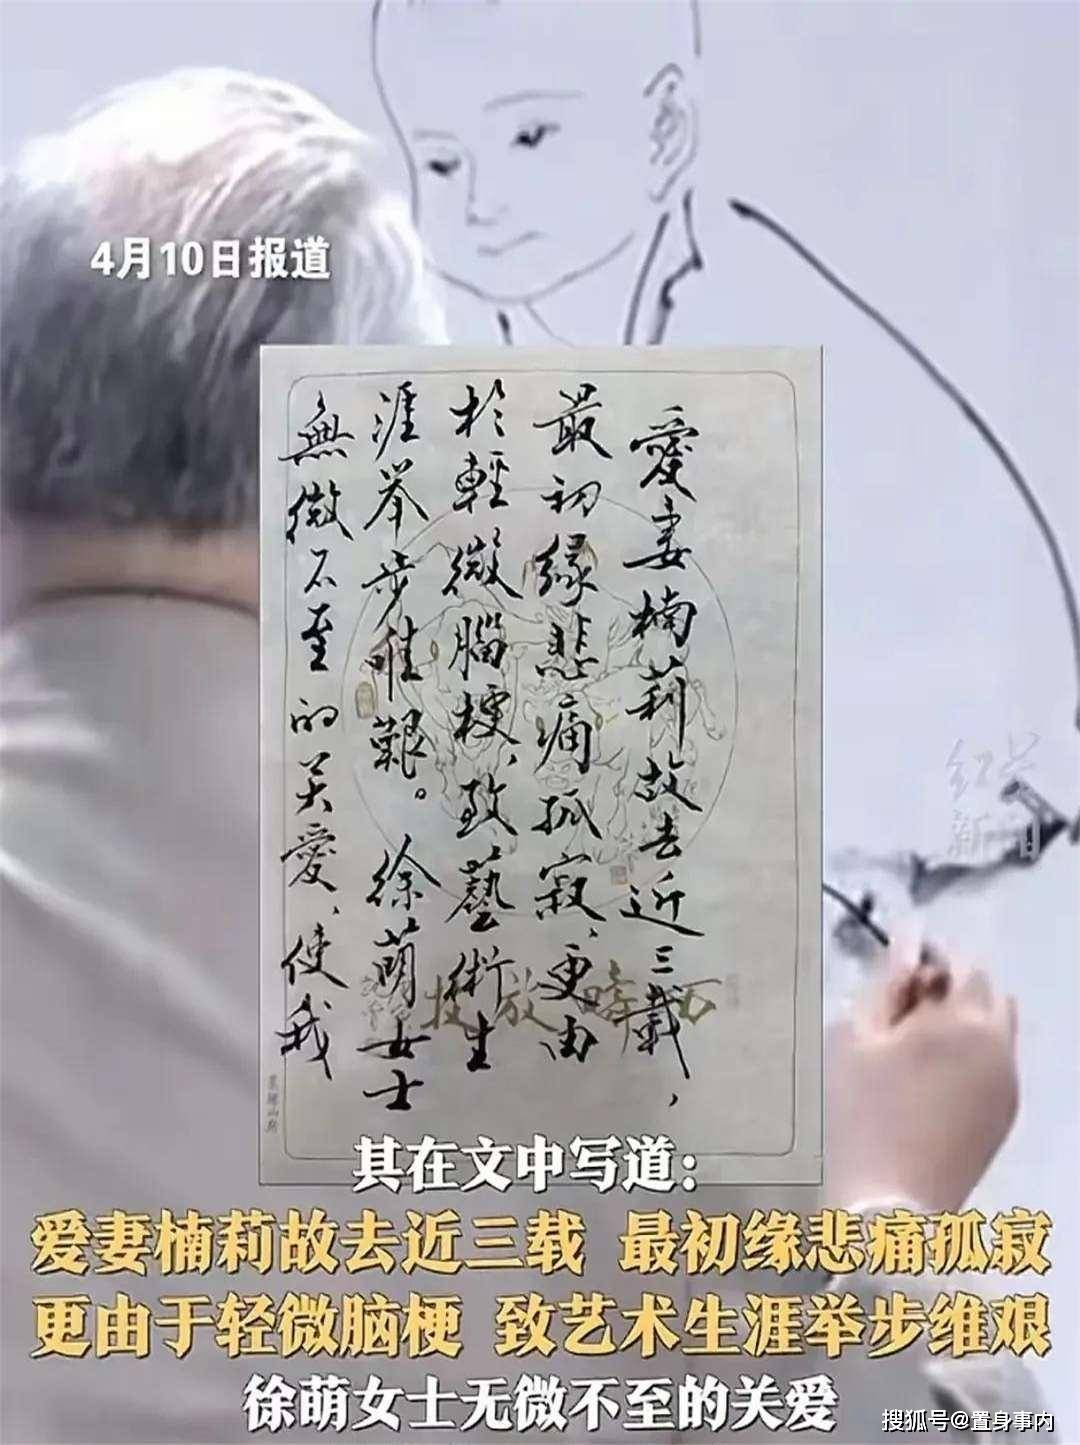 4月10日报道
愛妻楠莉故去近三載，
最初緣悲痛孤寂、更由
於輕微腦梗，致藝術生
涯举步唯艱。徐萌女士
無微不至的关愛、使我
红星
新闻
其在文中写道：
爱妻楠莉故去近三载 最初缘悲痛孤寂
更由于轻微脑梗 致艺术生涯举步维艰
徐萌女士无微不至的关爱
搜狐号@置身事内